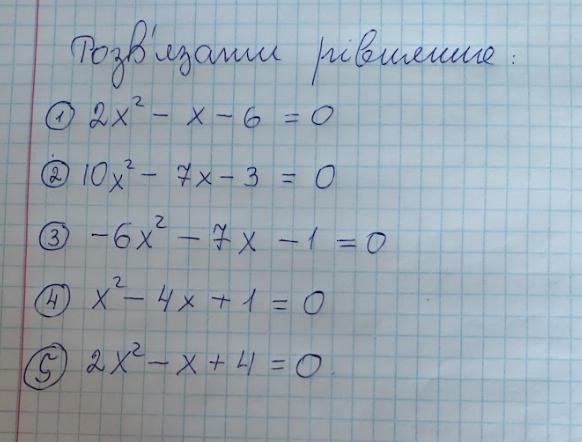 Розв'язати рівняння:
① 2x² - x - 6 = 0
② 10x² - 7x - 3 = 0
③ -6x² - 7x - 1 = 0
④ x² - 4x + 1 = 0
⑤ 2x² - x + 4 = 0.